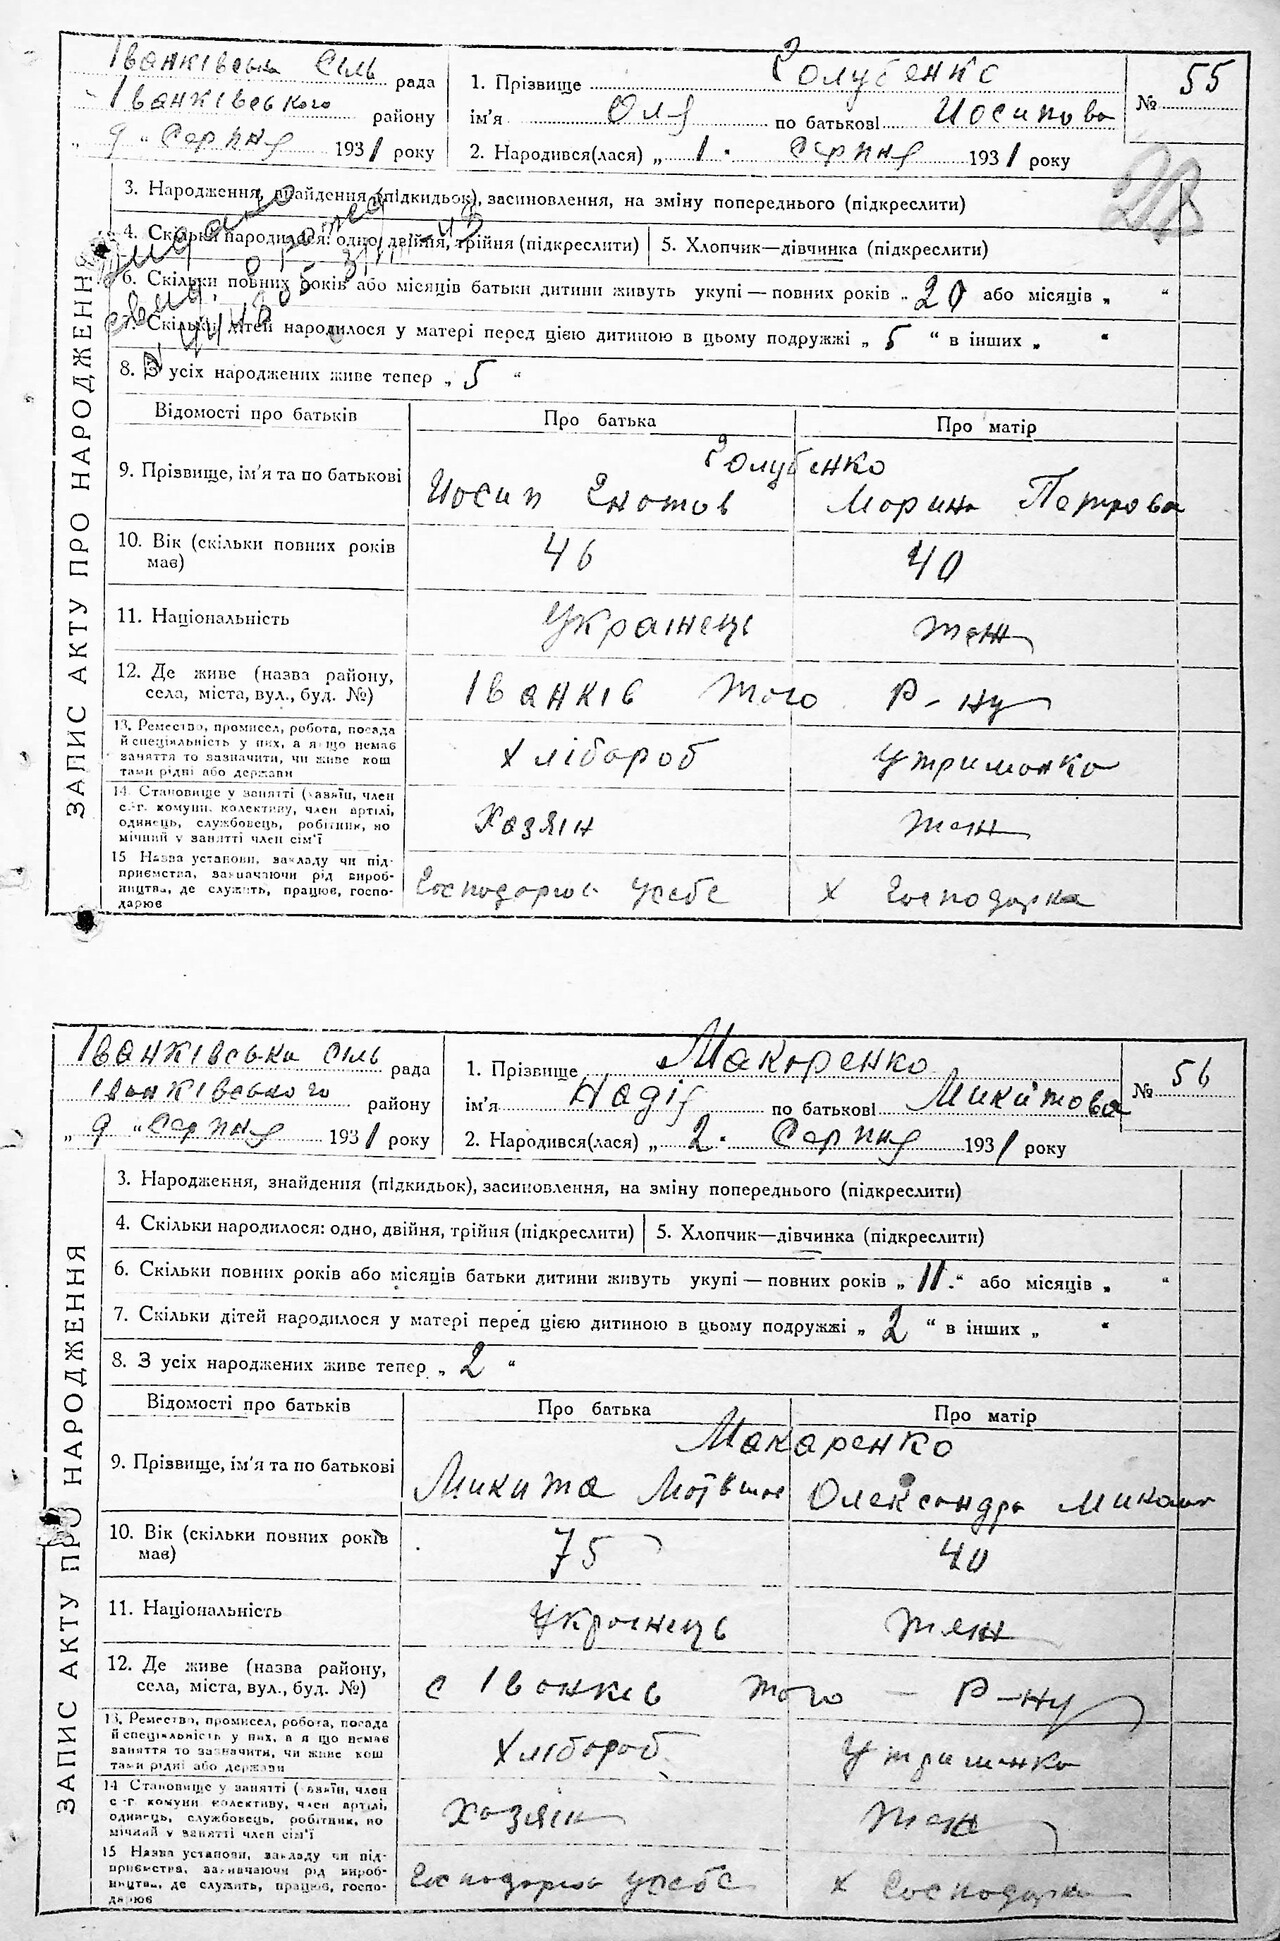 Іванківська Сіль рада
Іванківського району
„ 9 " Серпня 1931 року
1. Прізвище Голубенко
ім'я Оля по батькові Иосипова
2. Народився(лася) „ 1 . Серпня 1931 року
№ 55
28
3. Народження, знайдення (підкидьок), засиновлення, на зміну попереднього (підкреслити)
4. Скільки народилося: одно, двійня, трійня (підкреслити) 5. Хлопчик—дівчинка (підкреслити)
6. Скільки повних років або місяців батьки дитини живуть укупі — повних років „ 20 або місяців „ "
7. Скільки дітей народилося у матері перед цією дитиною в цьому подружжі „ 5 " в інших „ "
8. З усіх народжених живе тепер „ 5 "
ЗАПИС АКТУ ПРО НАРОДЖЕННЯ
Відомості про батьків Про батька Про матір
Голубенко
9. Прізвище, ім'я та по батькові Иосип Гнатов Морина Петрова
10. Вік (скільки повних років має) 46 40
11. Національність Українець теж
12. Де живе (назва району, села, міста, вул., буд. №) Іванків того Р-ну
13. Ремество, промисел, робота, посада
й спеціяльність у них, а якщо немає
заняття то зазначити, чи живе кош
тами рідні або держави Хлібороб Утриманка
14. Становище у занятті (хазяїн, член
с.-г. комуни, колективу, член артілі,
одинець, службовець, робітник, по
мічний у занятті член сім'ї Хазяін теж
15 Назва установи, закладу чи під-
приємства, зазначаючи рід вироб-
ництва, де служить, працює, госпо-
дарює Господарює усебе х Господарка
Іванківська сіль рада
Іванківського району
„ 9 " Серпня 1931 року
1. Прізвище Макаренко
ім'я Надія по батькові Микитова
2. Народився(лася) „ 2 . Серпня 1931 року
№ 56
3. Народження, знайдення (підкидьок), засиновлення, на зміну попереднього (підкреслити)
4. Скільки народилося: одно, двійня, трійня (підкреслити) 5. Хлопчик—дівчинка (підкреслити)
6. Скільки повних років або місяців батьки дитини живуть укупі — повних років „ 11 . " або місяців „ "
7. Скільки дітей народилося у матері перед цією дитиною в цьому подружжі „ 2 " в інших „ "
8. З усіх народжених живе тепер „ 2 "
ЗАПИС АКТУ ПРО НАРОДЖЕННЯ
Відомості про батьків Про батька Про матір
Макаренко
9. Прізвище, ім'я та по батькові Микита Олександра Микол
10. Вік (скільки повних років має) 75 40
11. Національність Українець теж
12. Де живе (назва району, села, міста, вул., буд. №) с Іванків того — Р-ну
13. Ремество, промисел, робота, посада
й спеціяльність у них, а якщо немає
заняття то зазначити, чи живе кош
тами рідні або держави Хлібороб Утриманка
14 Становище у занятті (хазяїн, член
с.-г. комуни колективу, член артілі,
одинець, службовець, робітник, по
мічний у занятті член сім'ї Хазяін теж
15 Назва установи, закладу чи під-
приємства, зазначаючи рід вироб-
ництва, де служить, працює, госпо-
дарює Господарює усебе х Господарка